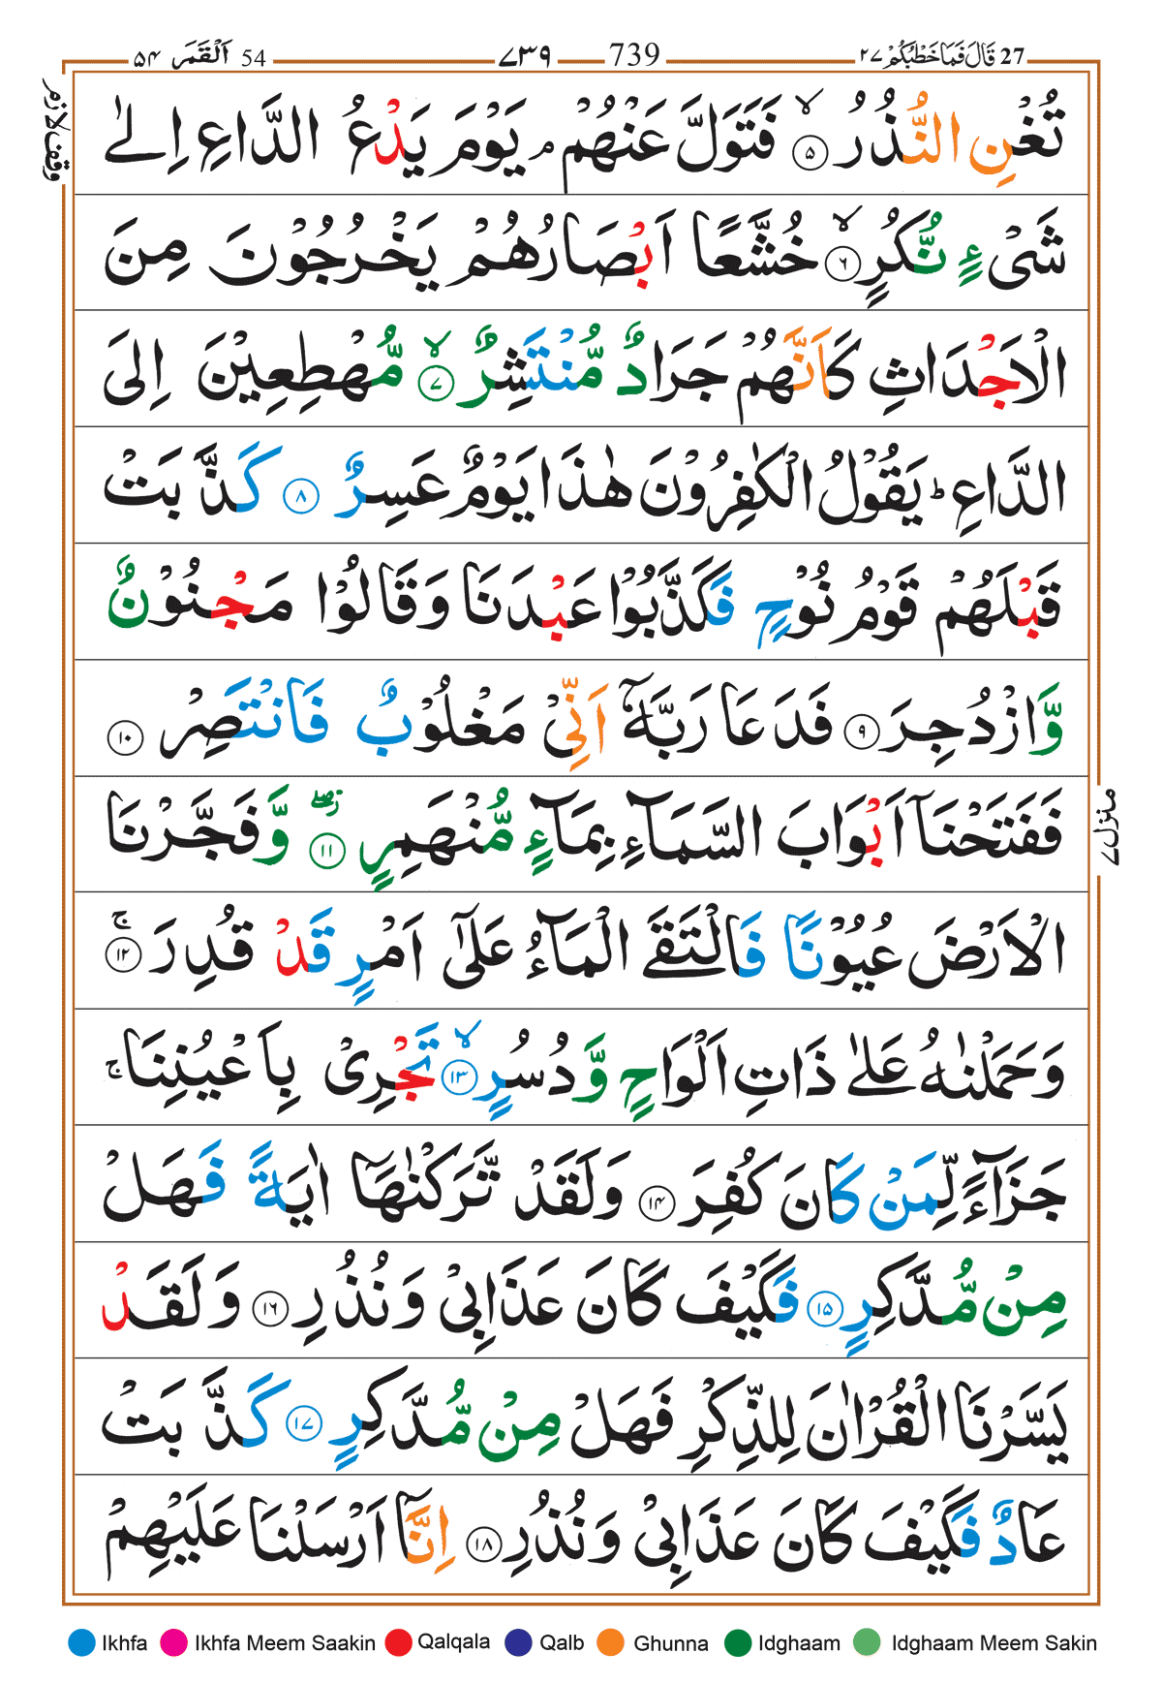 27 قَالَ فَمَا خَطْبُكُمْ ٢٧ 739 ٧٣٩ 54 اَلْقَمَر ٥٤
وقف لازم
تُغْنِ النُّذُرُ ۙ ٥ فَتَوَلَّ عَنْهُمْ ۘ يَوْمَ يَدْعُ الدَّاعِ اِلٰى
شَیْءٍ نُّكُرٍ ۙ ٦ خُشَّعًا اَبْصَارُهُمْ يَخْرُجُوْنَ مِنَ
الْاَجْدَاثِ كَاَنَّهُمْ جَرَادٌ مُّنْتَشِرٌ ۙ ٧ مُّهْطِعِيْنَ اِلَى
الدَّاعِ ؕ يَقُوْلُ الْكٰفِرُوْنَ هٰذَا يَوْمٌ عَسِرٌ ٨ كَذَّبَتْ
قَبْلَهُمْ قَوْمُ نُوْحٍ فَكَذَّبُوْا عَبْدَنَا وَقَالُوْا مَجْنُوْنٌ
وَّازْدُجِرَ ٩ فَدَعَا رَبَّهٗۤ اَنِّیْ مَغْلُوْبٌ فَانْتَصِرْ ١٠
فَفَتَحْنَاۤ اَبْوَابَ السَّمَآءِ بِمَآءٍ مُّنْهَمِرٍ ۖ ١١ وَّفَجَّرْنَا
منزل ٧
الْاَرْضَ عُيُوْنًا فَالْتَقَى الْمَآءُ عَلٰۤى اَمْرٍ قَدْ قُدِرَ ۚ ١٢
وَحَمَلْنٰهُ عَلٰى ذَاتِ اَلْوَاحٍ وَّدُسُرٍ ۙ ١٣ تَجْرِیْ بِاَعْيُنِنَا ۚ
جَزَآءً لِّمَنْ كَانَ كُفِرَ ١٤ وَلَقَدْ تَّرَكْنٰهَاۤ اٰيَةً فَهَلْ
مِنْ مُّدَّكِرٍ ١٥ فَكَيْفَ كَانَ عَذَابِیْ وَنُذُرِ ١٦ وَلَقَدْ
يَسَّرْنَا الْقُرْاٰنَ لِلذِّكْرِ فَهَلْ مِنْ مُّدَّكِرٍ ١٧ كَذَّبَتْ
عَادٌ فَكَيْفَ كَانَ عَذَابِیْ وَنُذُرِ ١٨ اِنَّاۤ اَرْسَلْنَا عَلَيْهِمْ
Ikhfa Ikhfa Meem Saakin Qalqala Qalb Ghunna Idghaam Idghaam Meem Sakin